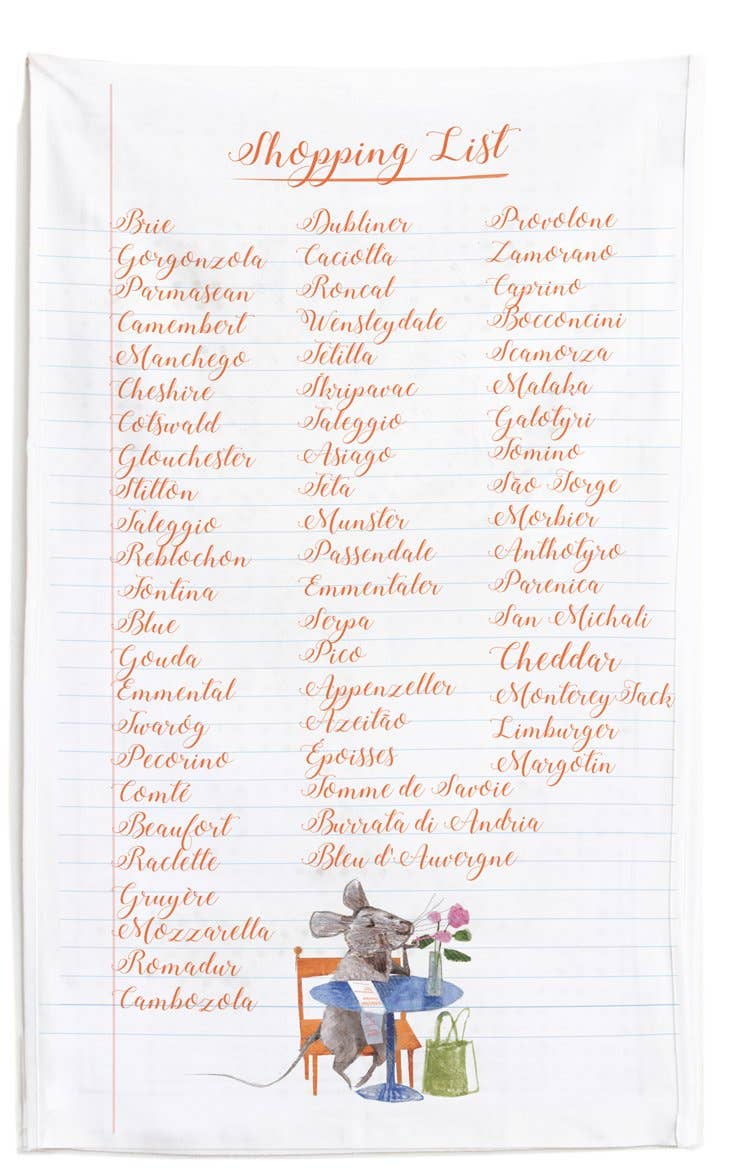 Shopping List
Brie
Gorgonzola
Parmasean
Camembert
Manchego
Cheshire
Cotswald
Glouchester
Stilton
Taleggio
Reblochon
Fontina
Blue
Gouda
Emmental
Twaróg
Pecorino
Comté
Beaufort
Raclette
Gruyère
Mozzarella
Romadur
Cambozola
Dubliner
Caciotta
Roncal
Wensleydale
Tetilla
Škripavac
Taleggio
Asiago
Feta
Munster
Passendale
Emmentaler
Serpa
Pico
Appenzeller
Azeitão
Époisses
Tomme de Savoie
Burrata di Andria
Bleu d'Auvergne
Provolone
Zamorano
Caprino
Bocconcini
Scamorza
Malaka
Galotyri
Tomino
São Jorge
Morbier
Anthotyro
Parenica
San Michali
Cheddar
Monterey Jack
Limburger
Margotin